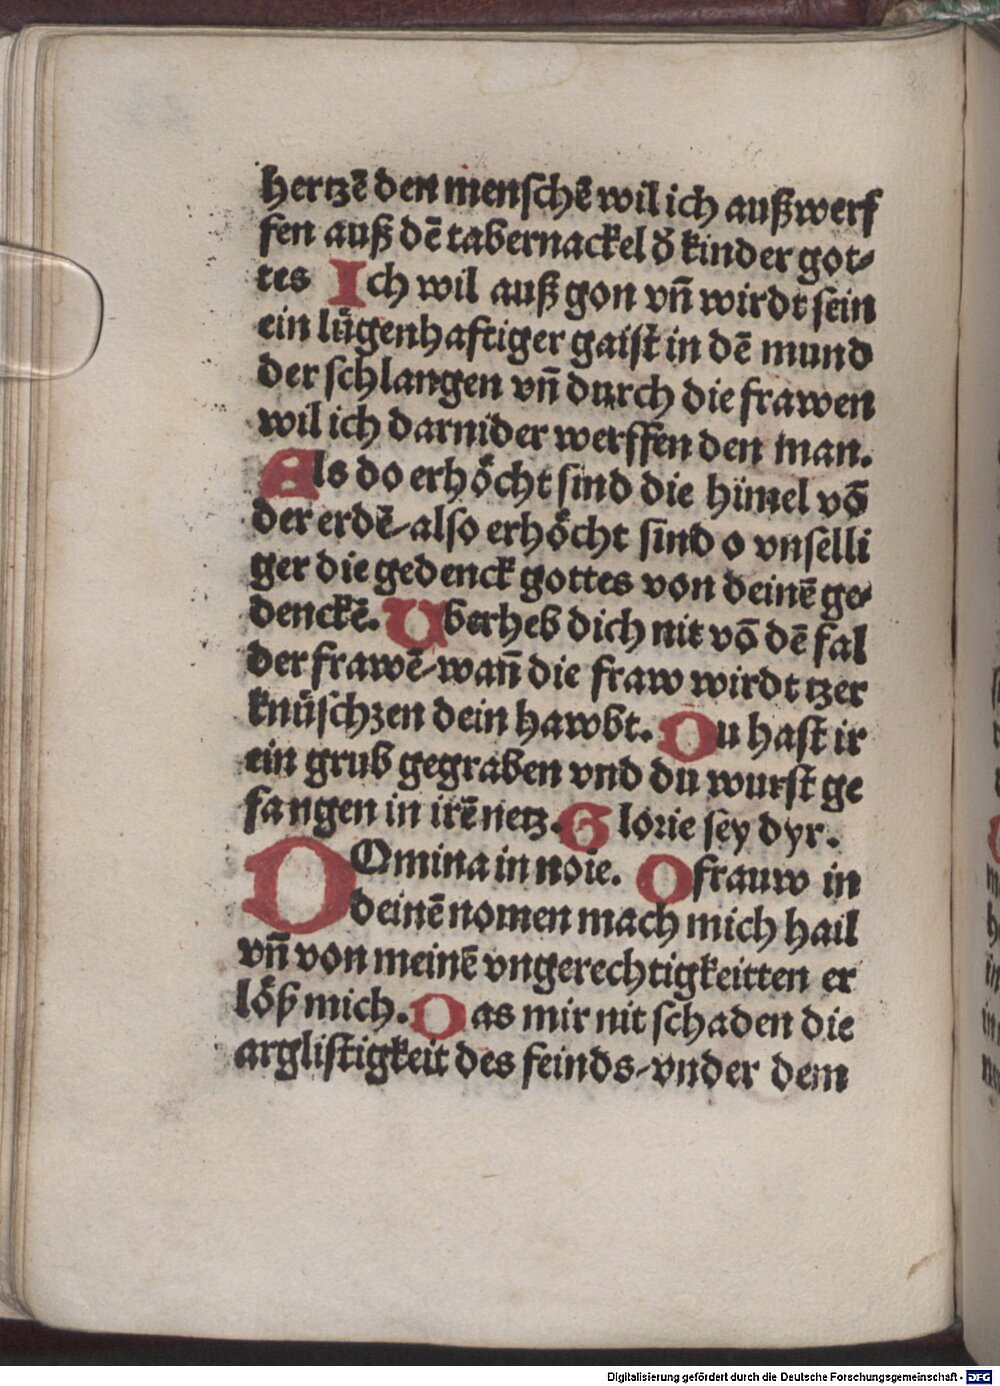 hertzē den menschē wil ich außwerf
fen auß dē tabernackel d̓ kinder got⸗
tes Ich wil auß gon vn̄ wirdt sein
ein lügenhaftiger gaist in dē mund
der schlangen vn̄ durch die frawen
wil ich darnider werffen den man.
Als do erhöcht sind die himel vō
der erdē/also erhöcht sind o vnselli
ger die gedenck gottes von deinē ge⸗
denckē. Uberheb dich nit vō dē fal
der frawē/wan̄ die fraw wirdt tzer
knüschzen dein hawbt. Du hast ir
ein grub gegraben vnd du wurst ge
fangen in irē netz. Glorie sey dyr.
DOmina in noīe. O frauw in
deinē nomen mach mich hail
vn̄ von meinē vngerechtigkeitten er
löß mich. Das mir nit schaden die
arglistigkeit des feinds/vnder dem
Digitalisierung gefördert durch die Deutsche Forschungsgemeinschaft - DFG